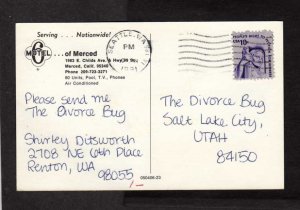 Serving . . . Nationwide!
6
MOTEL
. . . of Merced
1983 E. Childs Ave. & Hwy 99
Merced, Calif. 95340
Phone 209-723-3271
80 Units, Pool, T.V., Phones
Air Conditioned
SEATTLE, WA
PM
10c
Please send me
The Divorce Bug
Shirley Ditsworth
2708 NE 6th Place
Renton, WA
98055
The Divorce Bug
Salt Lake City,
UTAH
84150
1-
050406-23